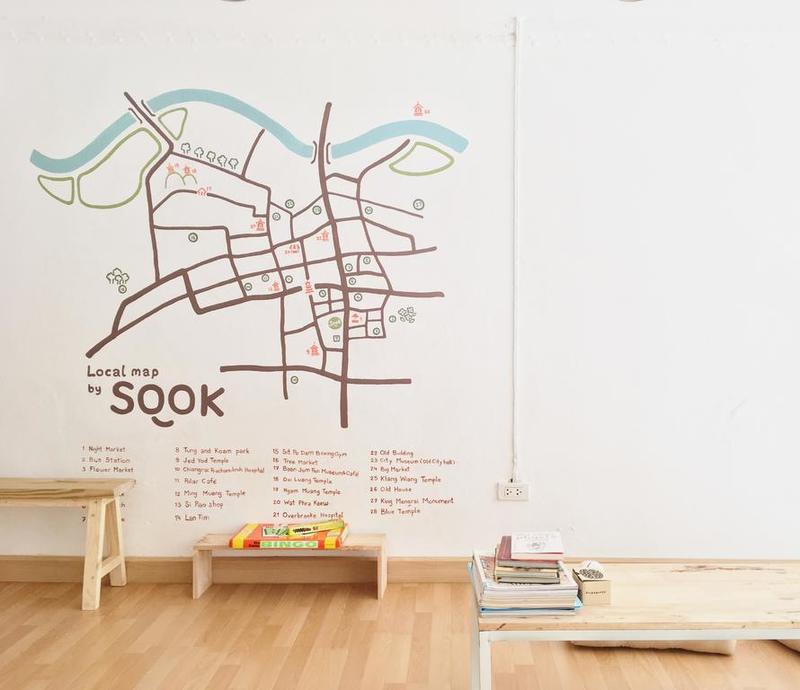 Local map
by SOOK
1 Night Market
2 Bus Station
3 Flower Market
8 Tung and Koam park
9 Jed Yod Temple
10 Chiangrai Prachanukroh Hospital
11 Pilar Café
12 Ming Muang Temple
13 Si Pao shop
14 Lan Tim
15 Sit Po Dam Boxing Gym
16 Tree Market
17 Baan Jum Fun Museum&Café
18 Doi Luang Temple
19 Ngam Muang Temple
20 Wat Phra Kaew
21 Overbrooke Hospital
22 Old Building
23 City Museum (Old City hall)
24 Big Market
25 Klang Wiang Temple
26 Old House
27 King Mengrai Monument
28 Blue Temple
BINGO